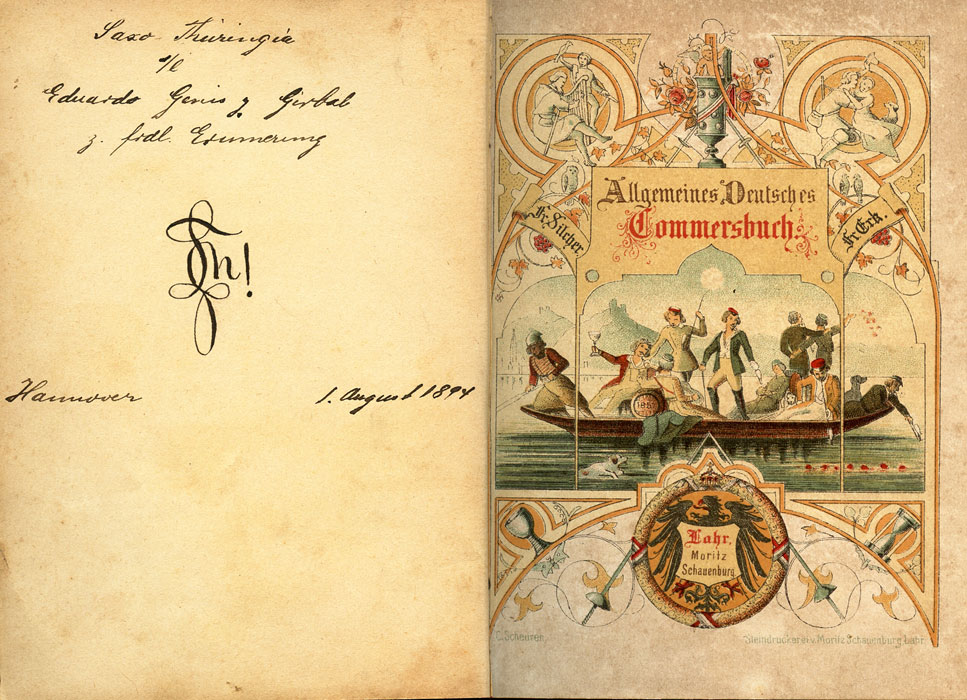 Saxo Thüringia
s/l
Eduardo Genis y Girbal
z. frdl. Erinnerung
Hannover
1. August 1894
Allgemeines Deutsches
Commersbuch.
Fr. Silcher.
Fr. Erk.
Lahr,
Moritz
Schauenburg.
C. Scheuren.
Steindruckerei v. Moritz Schauenburg Lahr